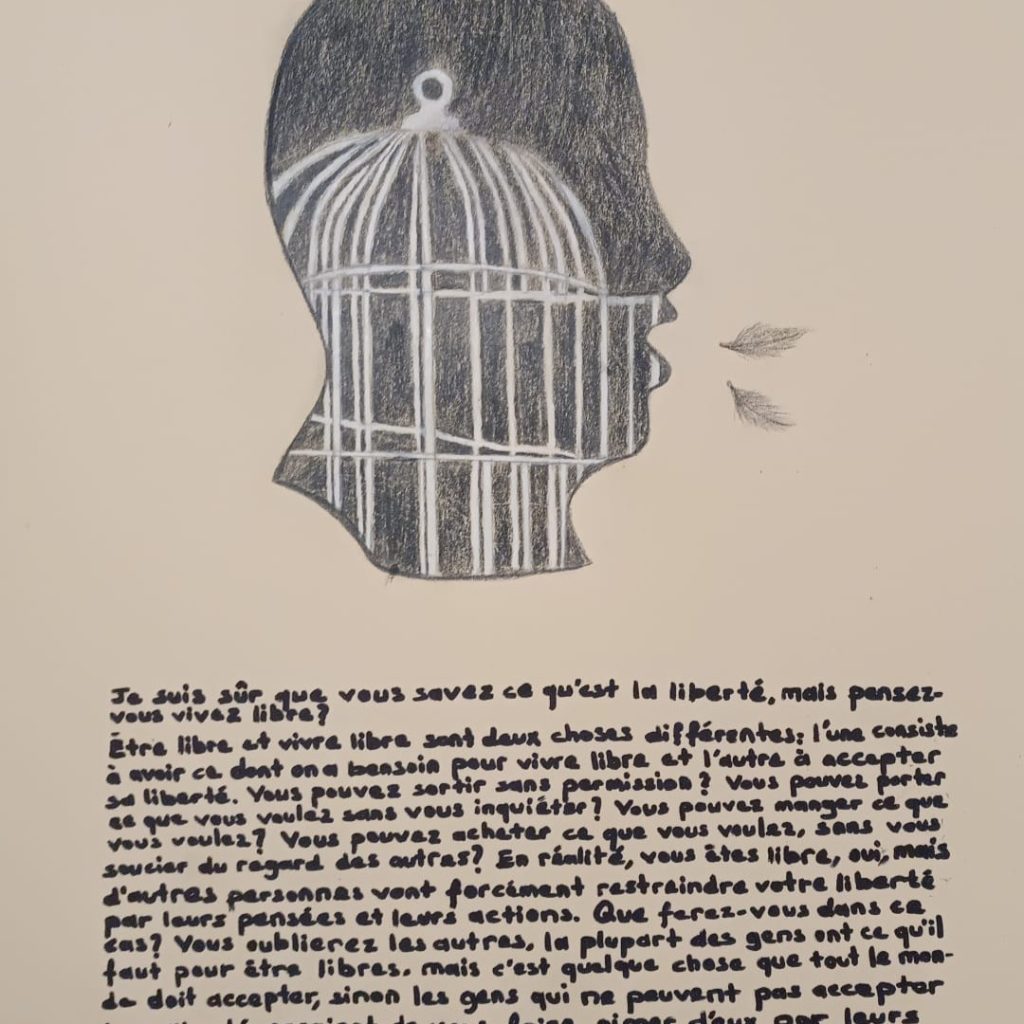 Je suis sûr que vous savez ce qu'est la liberté, mais pensez-
vous vivez libre?
Être libre et vivre libre sont deux choses différentes: l'une consiste
à avoir ce dont on a bensoin pour vivre libre et l'autre à accepter
sa liberté. Vous pouvez sortir sans permission? Vous pouvez porter
ce que vous voulez sans vous inquiéter? Vous pouvez manger ce que
vous voulez? Vous pouvez acheter ce que vous voulez, sans vous
soucier du regard des autres? En réalité, vous êtes libre, oui, mais
d'autres personnes vont forcément restraindre votre liberté
par leurs pensées et leurs actions. Que ferez-vous dans ce
cas? Vous oublierez les autres, la plupart des gens ont ce qu'il
faut pour être libres. mais c'est quelque chose que tout le mon-
de doit accepter, sinon les gens qui ne peuvent pas accepter
d'eux par leurs